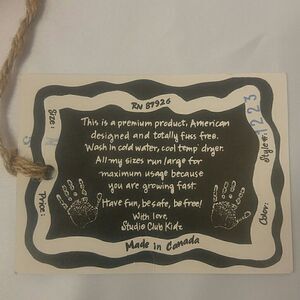 RN 87926
Size:
S
This is a premium product, American
designed and totally fuss free.
Wash in cold water, cool temp dryer.
All my sizes run large for
maximum usage because
you are growing fast.
Have fun, be safe, be free!
With love,
Studio Club Kidz
Made in Canada
Price:
Style#:
1223
Color: